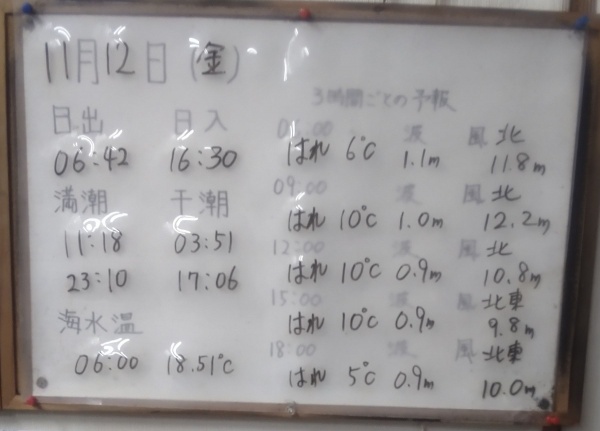 11月12日(金)
日出 日入
06:42 16:30
満潮 干潮
11:18 03:51
23:10 17:06
海水温
06:00 18.51℃
3時間ごての予報
06:00 波 風 北
はれ 6℃ 1.1m 11.8m
09:00 波 風 北
はれ 10℃ 1.0m 12.2m
12:00 波 風 北
はれ 10℃ 0.9m 10.8m
15:00 波 風 北東
はれ 10℃ 0.9m 9.8m
18:00 波 風 北東
はれ 5℃ 0.9m 10.0m